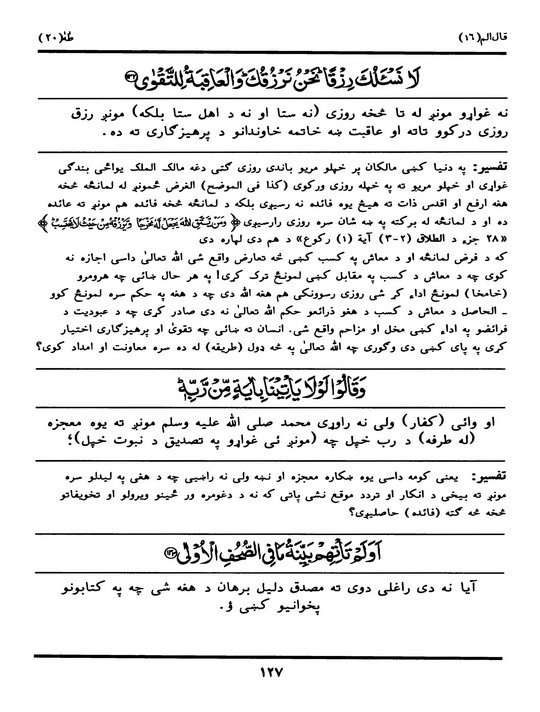 قال الم (١٦)
طٰهٰ (٢٠)
لَا نَسْـَٔلُكَ رِزْقًا نَحْنُ نَرْزُقُكَ وَالْعَاقِبَةُ لِلتَّقْوٰى ﴿١٣٢﴾
نه غواړو مونږ له تا څخه روزی (نه ستا او نه د اهل ستا بلکه) مونږ رزق
روزی درکوو تاته او عاقبت ښه خاتمه خاوندانو د پرهیزگاری ته ده.
تفسیر: په دنیا کښی مالکان پر خپلو مریو باندی روزی گټی دغه مالک الملک یوائی بندگی
غواړی او خپلو مریو ته په خپله روزی ورکوی (کذا فی الموضح) الغرض ځمونږ له لمانځه څخه
هغه ارفع او اقدس ذات ته هیڅ یوه فائده نه رسیږی بلکه د لمانځه څخه فائده هم مونږ ته عائده
ده او د لمانځه له برکته په ښه شان سره روزی رارسیږی ﴿وَمَنْ يَّتَّقِ اللّٰهَ يَجْعَلْ لَّهٗ مَخْرَجًا وَّيَرْزُقْهُ مِنْ حَيْثُ لَا يَحْتَسِبُ﴾
«٢٨ جزء د الطلاق (٢-٣) آیة (١) رکوع» د هم دی لپاره دی
که د فرض لمانځه او د معاش په کسب کښی څه تعارض واقع شی الله تعالیٰ داسی اجازه نه
کوی چه د معاش د کسب په مقابل کښی لمونځ ترک کړی! په هر حال ښائی چه هرومرو
(خامخا) لمونځ اداء کړ شی روزی رسوونکی هم هغه الله دی چه د هغه په حکم سره لمونځ کوو
- الحاصل د معاش د کسب د هغو ذرائعو حکم الله تعالیٰ نه دی صادر کړی چه د عبودیت د
فرائضو په اداء کښی مخل او مزاحم واقع شی. انسان ته ښائی چه تقویٰ او پرهیزگاری اختیار
کړی په پای کښی دی وگوری چه الله تعالیٰ په څه ډول (طریقه) له ده سره معاونت او امداد کوی؟
وَقَالُوْا لَوْلَا يَأْتِيْنَا بِاٰيَةٍ مِّنْ رَّبِّهٖ
او وائی (کفار) ولی نه راوړی محمد صلی الله علیه وسلم مونږ ته یوه معجزه
(له طرفه) د رب خپل چه (مونږ ئی غواړو په تصدیق د نبوت خپل)؛
تفسیر: یعنی کومه داسی یوه ښکاره معجزه او نښه ولی نه راښیی چه د هغی په لیدلو سره
مونږ ته بیخی د انکار او تردد موقع نشی پاتی که نه د دغومره ور ځینو ویرولو او تخویفاتو
څخه څه گټه (فائده) حاصلیږی؟
اَوَلَمْ تَأْتِهِمْ بَيِّنَةُ مَا فِى الصُّحُفِ الْاُوْلٰى ﴿١٣٣﴾
آیا نه دی راغلی دوی ته مصدق دلیل برهان د هغه شی چه په کتابونو
پخوانیو کښی ؤ.
١٢٧